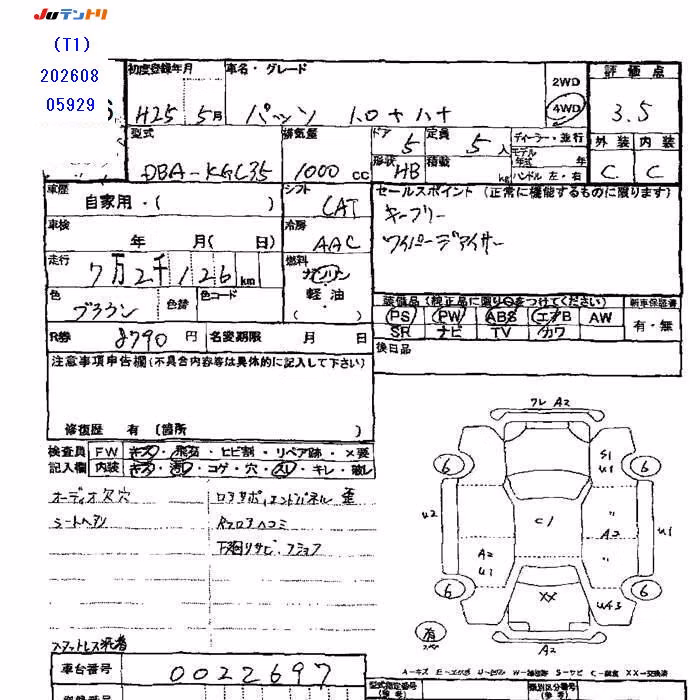 JUテントリ
(T1)
202608
05929
初度登録年月 車名・グレード 評価点
2WD
H25 5月 4WD 3.5
型式 排気量 ドア 5 定員 5人 ディーラー・並行 外装 内装
モデル年式 年
DBA-KGC35 1000 cc 形状 HB 積載 kg ハンドル 左・右 C C
車歴 シフト セールスポイント (正常に機能するものに限ります)
自家用・( ) CAT キーフリー
車検 冷房
年 月( 日) AAC ワイパーデアイサー
走行 燃料
7万2千126km ガソリン
色 色替 色コード 軽油 装備品(純正品に限り○をつけてください) 新車保証書
ブラウン ・( ) PS PW ABS エアB AW 有・無
R券 8790円 名変期限 月 日 SR ナビ TV カワ
注意事項申告欄(不具合内容等は具体的に記入して下さい) 後日品
修復歴 有 (箇所 )
検査員 FW キズ・飛石・ヒビ割・リペア跡・×要
記入欄 内装 キズ・汚レ・コゲ・穴・スレ・キレ・破レ
オーディオ欠穴
シートヘタリ
Rフロアヘコミ
下廻リサビ・
スタットレス
車台番号 0022697
ワレ A2
6 6
S1
U1
U2 C1 A2 U1
A2
U1
6 XX U43 6
有
スペアー
A2
A-キズ E-エクボ U-凹ミ W-補修跡 S-サビ C-腐食 XX-交換済
型式指定番号 類別区分番号
(参考) (参考)